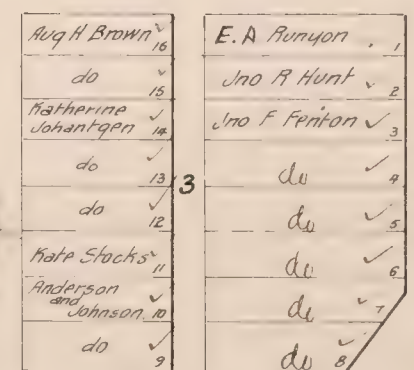 Aug H Brown
16
do
15
Katherine
Johantgen 14
do
13
do
12
Kate Stocks
11
Anderson
and
Johnson 10
do
9
3
E. A Runyon
1
Jno R Hunt
2
Jno F Fenton
3
do
4
do
5
do
6
do
7
do
8